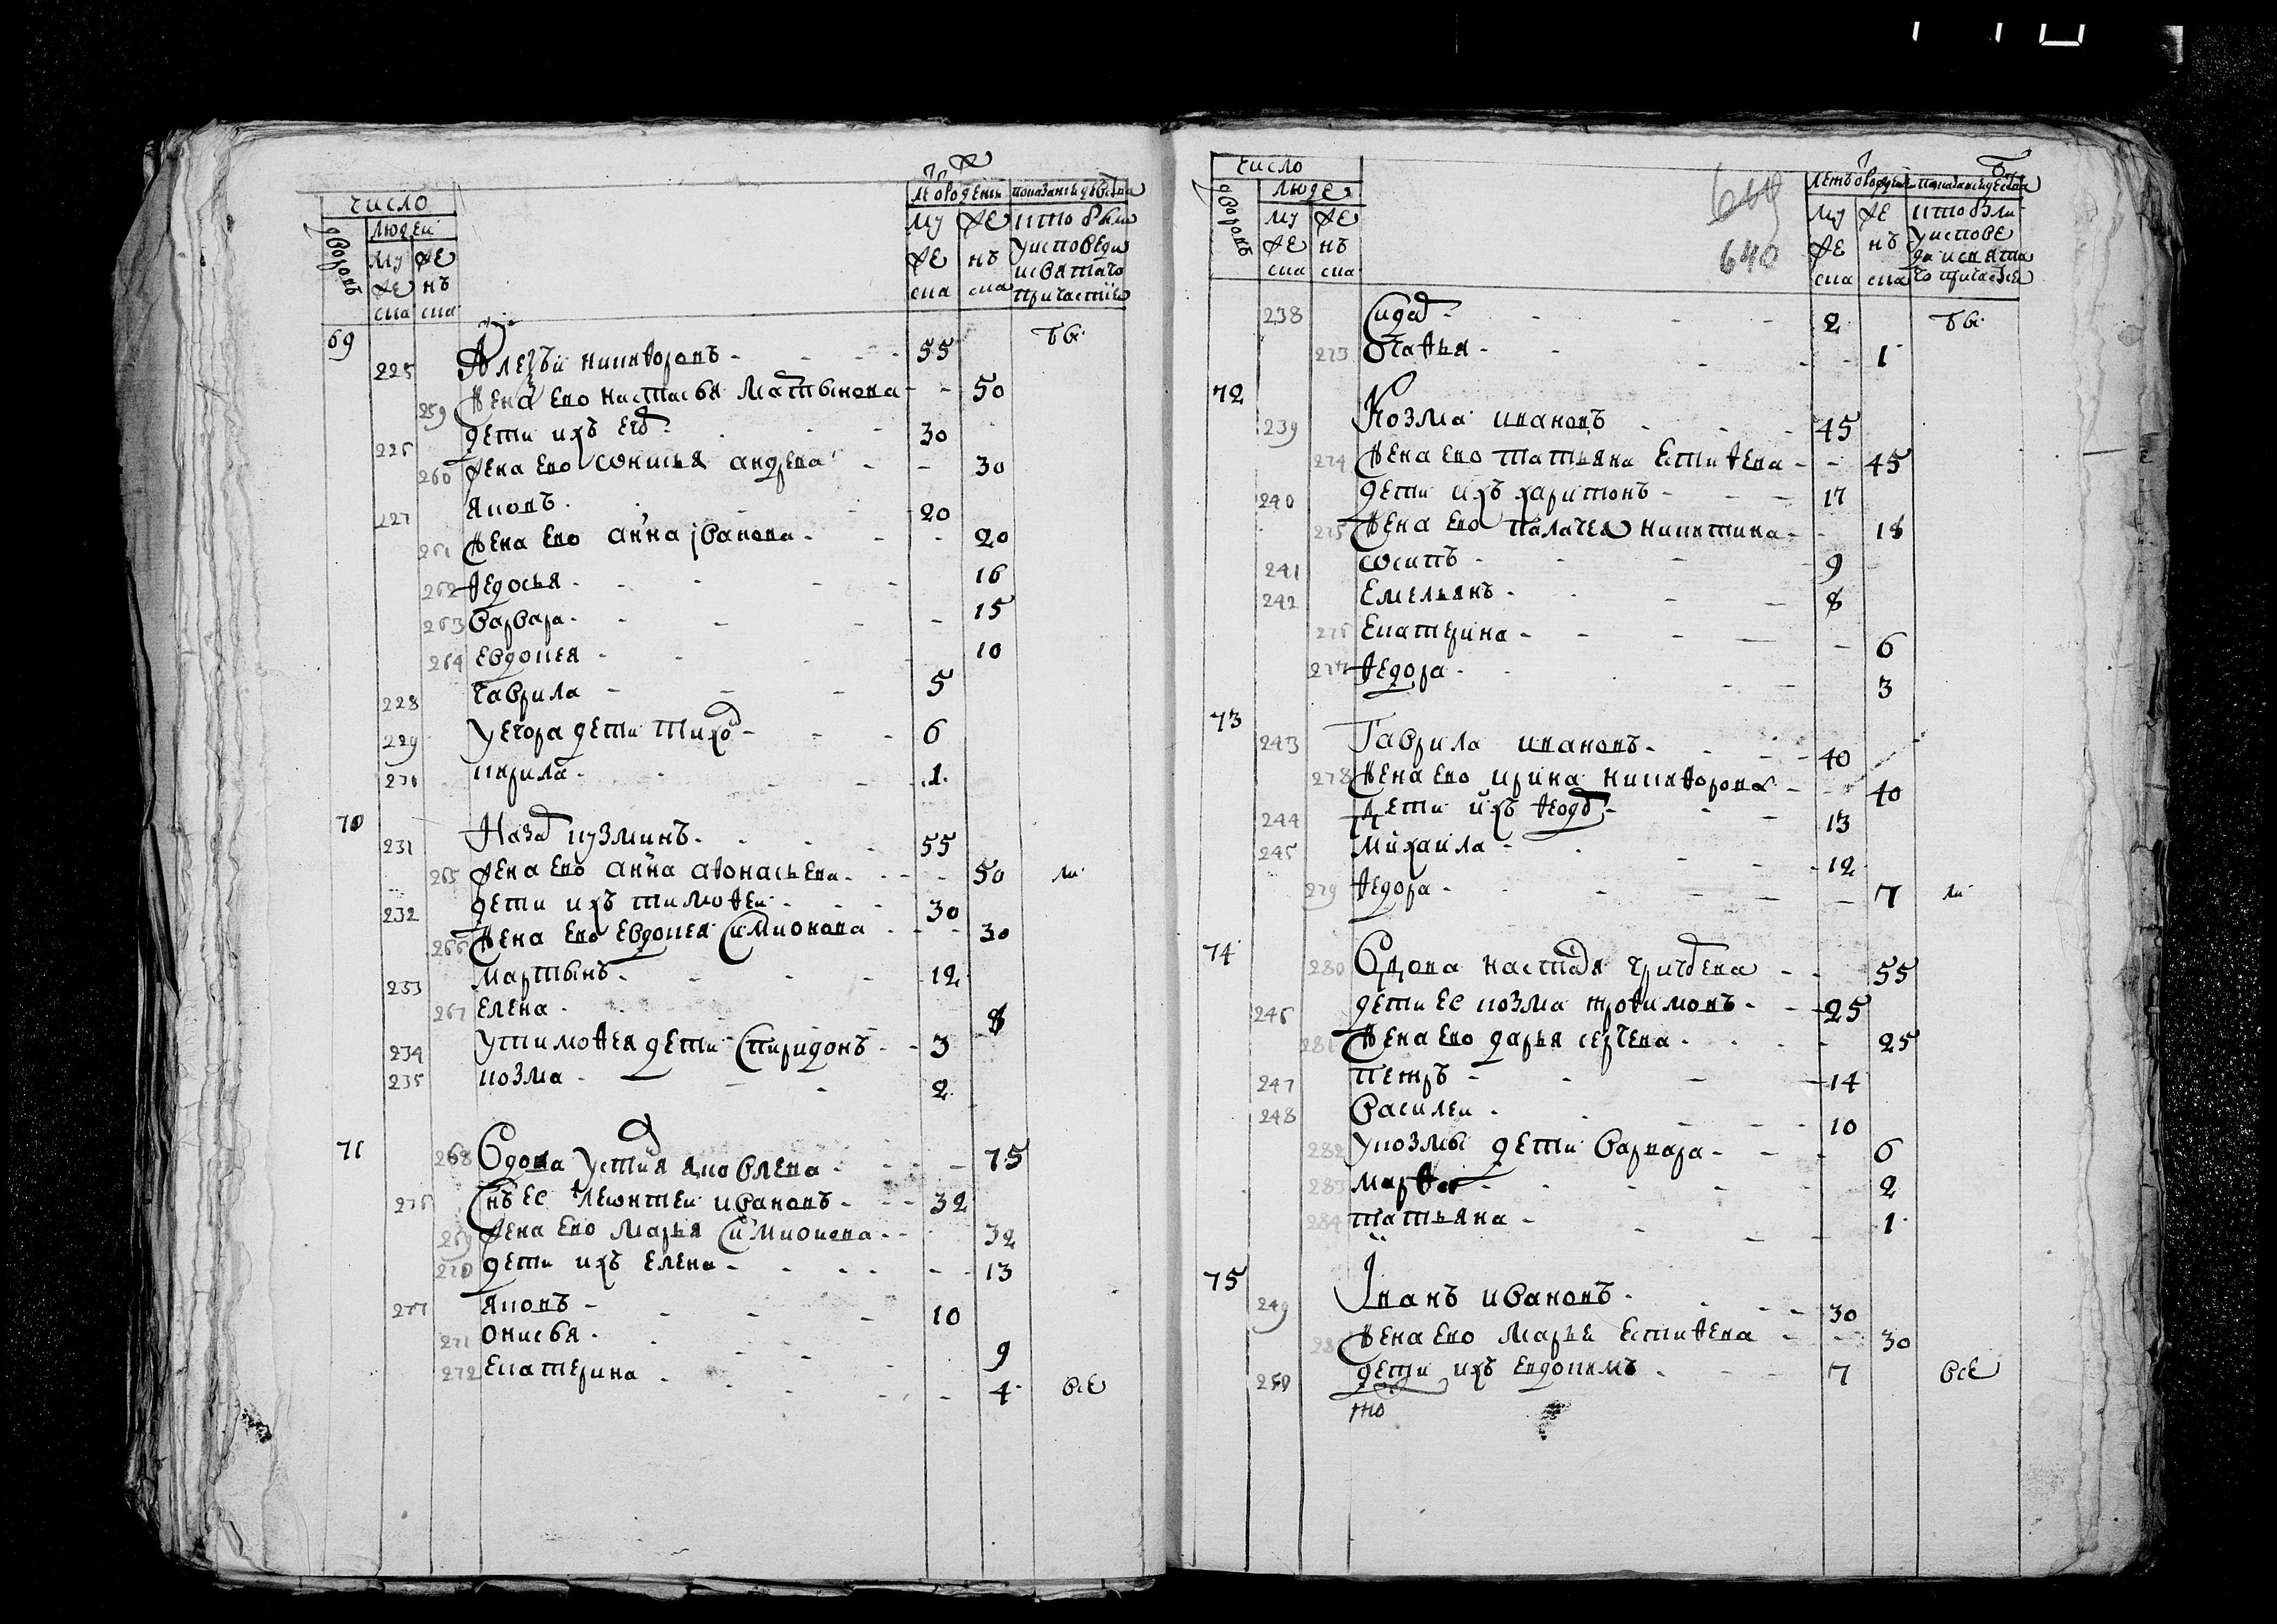 число
людеи
дворовъ
му же ска
же нъ ска
ле о роденъ
му же ска
же нъ ска
показание действа
кто были у исповеди и святаго причастия
69 225 Алезѣи никифоровъ - 55 бы
259 жена ево настасья мартынова - 50
226 дети ихъ его - 30
260 жена ево софисья андреева - 30
227 яковъ - 20
261 жена ево анна іванова - 20
262 федосья - 16
263 варвара - 15
264 евдокея - 10
228 гаврила - 5
229 у егора дети тихо - 6
230 кирила - 1
70 231 Наза кузминъ - 55
265 жена ево анна афонасьева - 50 ли
232 дети ихъ тимофеи - 30
266 жена ево евдокея симионова - 30
233 мартынъ - 12
267 елена - 8
234 у тимофея дети спиридонъ - 3
235 козма - 2
71 268 вдова устия яковлева - 75
236 снъ ее леонтеи ивановъ - 32
269 жена ево марья симионова - 32
270 дети ихъ елена - 13
237 яковъ - 10
271 онисья - 9
272 екатерина - 4 все
число
людеи
дворовъ
му же ска
же нъ ска
640
летъ о роден
му же ска
же нъ ска
показание действа
кто были у исповеди и святаго причастия
238 Сидо - 2 бы
273 Огафья - 1
72 239 Козма ивановъ - 45
274 жена ево татьяна естифева - 45
240 дети ихъ харитонъ - 17
275 жена ево палагея никитина - 18
241 осипъ - 9
242 емельянъ - 8
276 екатерина - 6
277 федора - 3
73 243 Гаврила ивановъ - 40
278 жена ево ирина никифорова - 40
244 дети ихъ феодо - 13
245 михаила - 12
279 федора - 7 ли
74 280 Вдова настася григоева - 55
246 дети ее козма трофимовъ - 25
281 жена ево дарья сергева - 25
247 петръ - 14
248 василеи - 10
282 у козмы дети варвара - 6
283 марфа - 2
284 татьяна - 1
75 249 Іванъ ивановъ - 30
285 жена ево марья естифева - 30
250 дети ихъ евдокимъ - 7 все